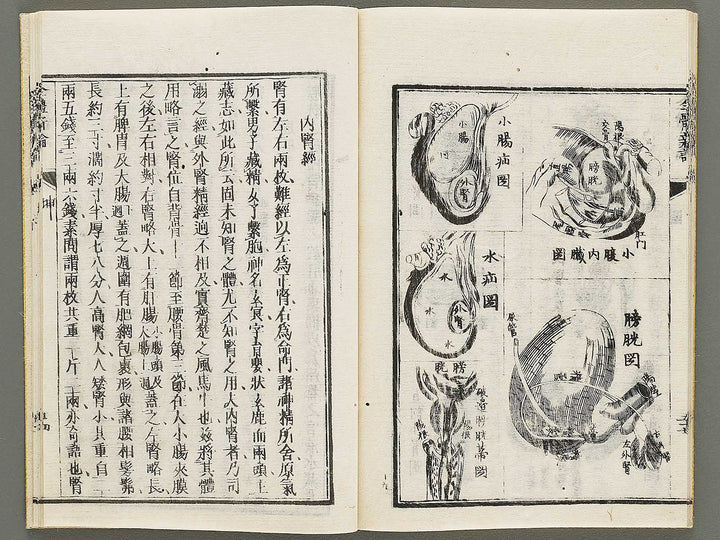 全體新論
膀胱
陽根
肛门
小腹内臟圖
膀胱圖
尿管
左外腎
小腸疝圖
小腸
外腎
水疝圖
水
水
外腎
膀胱
陽根
内腎經
腎有左右兩枚難經以左為正腎右為命門諸神精所舍原氣
所繫男子藏精女子繫胞神名玄冥字育嬰狀玄鹿而兩頭主
藏志如此所云固未知腎之體尤不知腎之用夫内腎者乃司
溺之經與外腎精經迥不相及實齊楚之風馬牛也茲將其體
用略言之腎位自背脊十一節至腰骨第三節在人小腸夾膜
之後左右相對右腎略大上有肝腸小腸頭及大腸上𢌞蓋之左腎略長
上有脾胃及大腸下𢌞蓋之週圍有肥網包裹形與諸腰相髣髴
長約二寸濶約寸半厚七八分人高腎大人矮腎小其重自三
兩五錢至三兩六錢素問謂兩枚共重一斤二兩亦奇語也腎